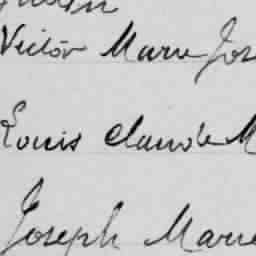 Victor Marie Jos
Louis Claude M
Joseph Marie